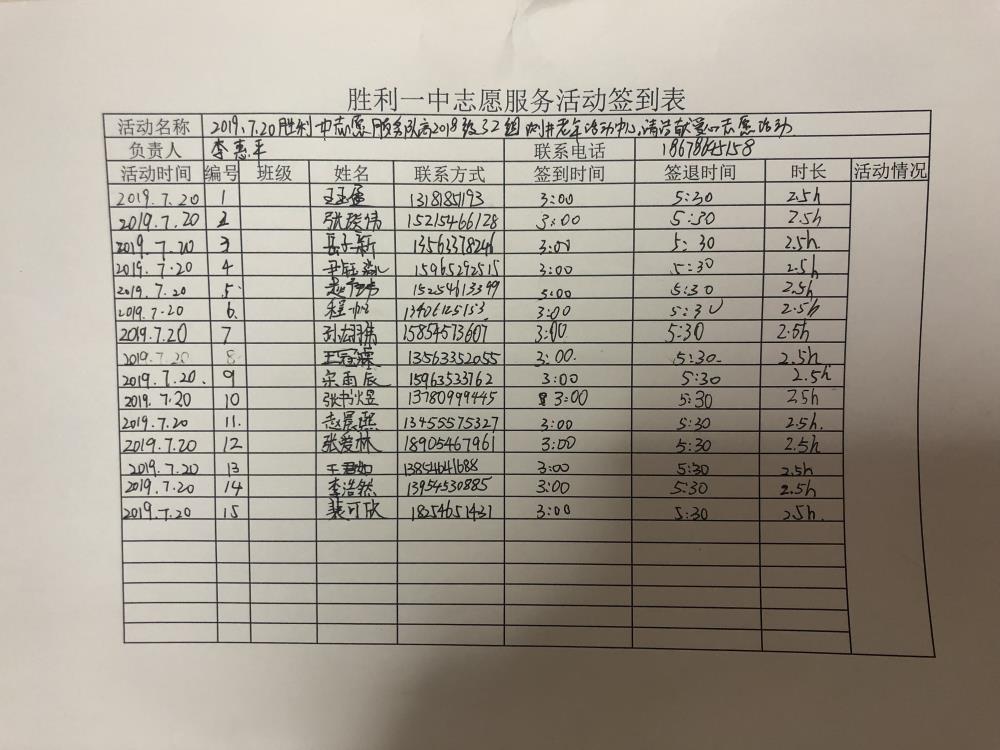 胜利一中志愿服务活动签到表
活动名称 2019.7.20胜利一中志愿服务队高2018级32组 老年活动中心 清洁献爱心志愿活动
负责人 李惠平 联系电话 18678645158
活动时间 编号 班级 姓名 联系方式 签到时间 签退时间 时长 活动情况
2019.7.20 1 1318185193 3:00 5:30 2.5h
2019.7.20 2 15215466128 3:00 5:30 2.5h
2019.7.20 3 岳子新 13563378246 3:00 5:30 2.5h
2019.7.20 4 15965292515 3:00 5:30 2.5h
2019.7.20 5. 15254613399 3:00 5:30 2.5h
2019.7.20 6. 13406125153 3:00 5:30 2.5h
2019.7.20 7 15854573607 3:00 5:30 2.5h
2019.7.20 8 王冠霖 13563352055 3:00. 5:30. 2.5h
2019.7.20. 9 宗雨辰 15963533762 3:00 5:30 2.5h
2019.7.20 10 张书煜 13780999445 3:00 5:30 2.5h
2019.7.20 11. 赵晨熙 13455575327 3:00 5:30 2.5h.
2019.7.20 12 张爱林 18905467961 3:00 5:30 2.5h
2019.7.20 13 王君如 13854641688 3:00 5:30 2.5h
2019.7.20 14 李浩然 13954530885 3:00 5:30 2.5h
2019.7.20 15 裴可欣 18254651431 3:00 5:30 2.5h.